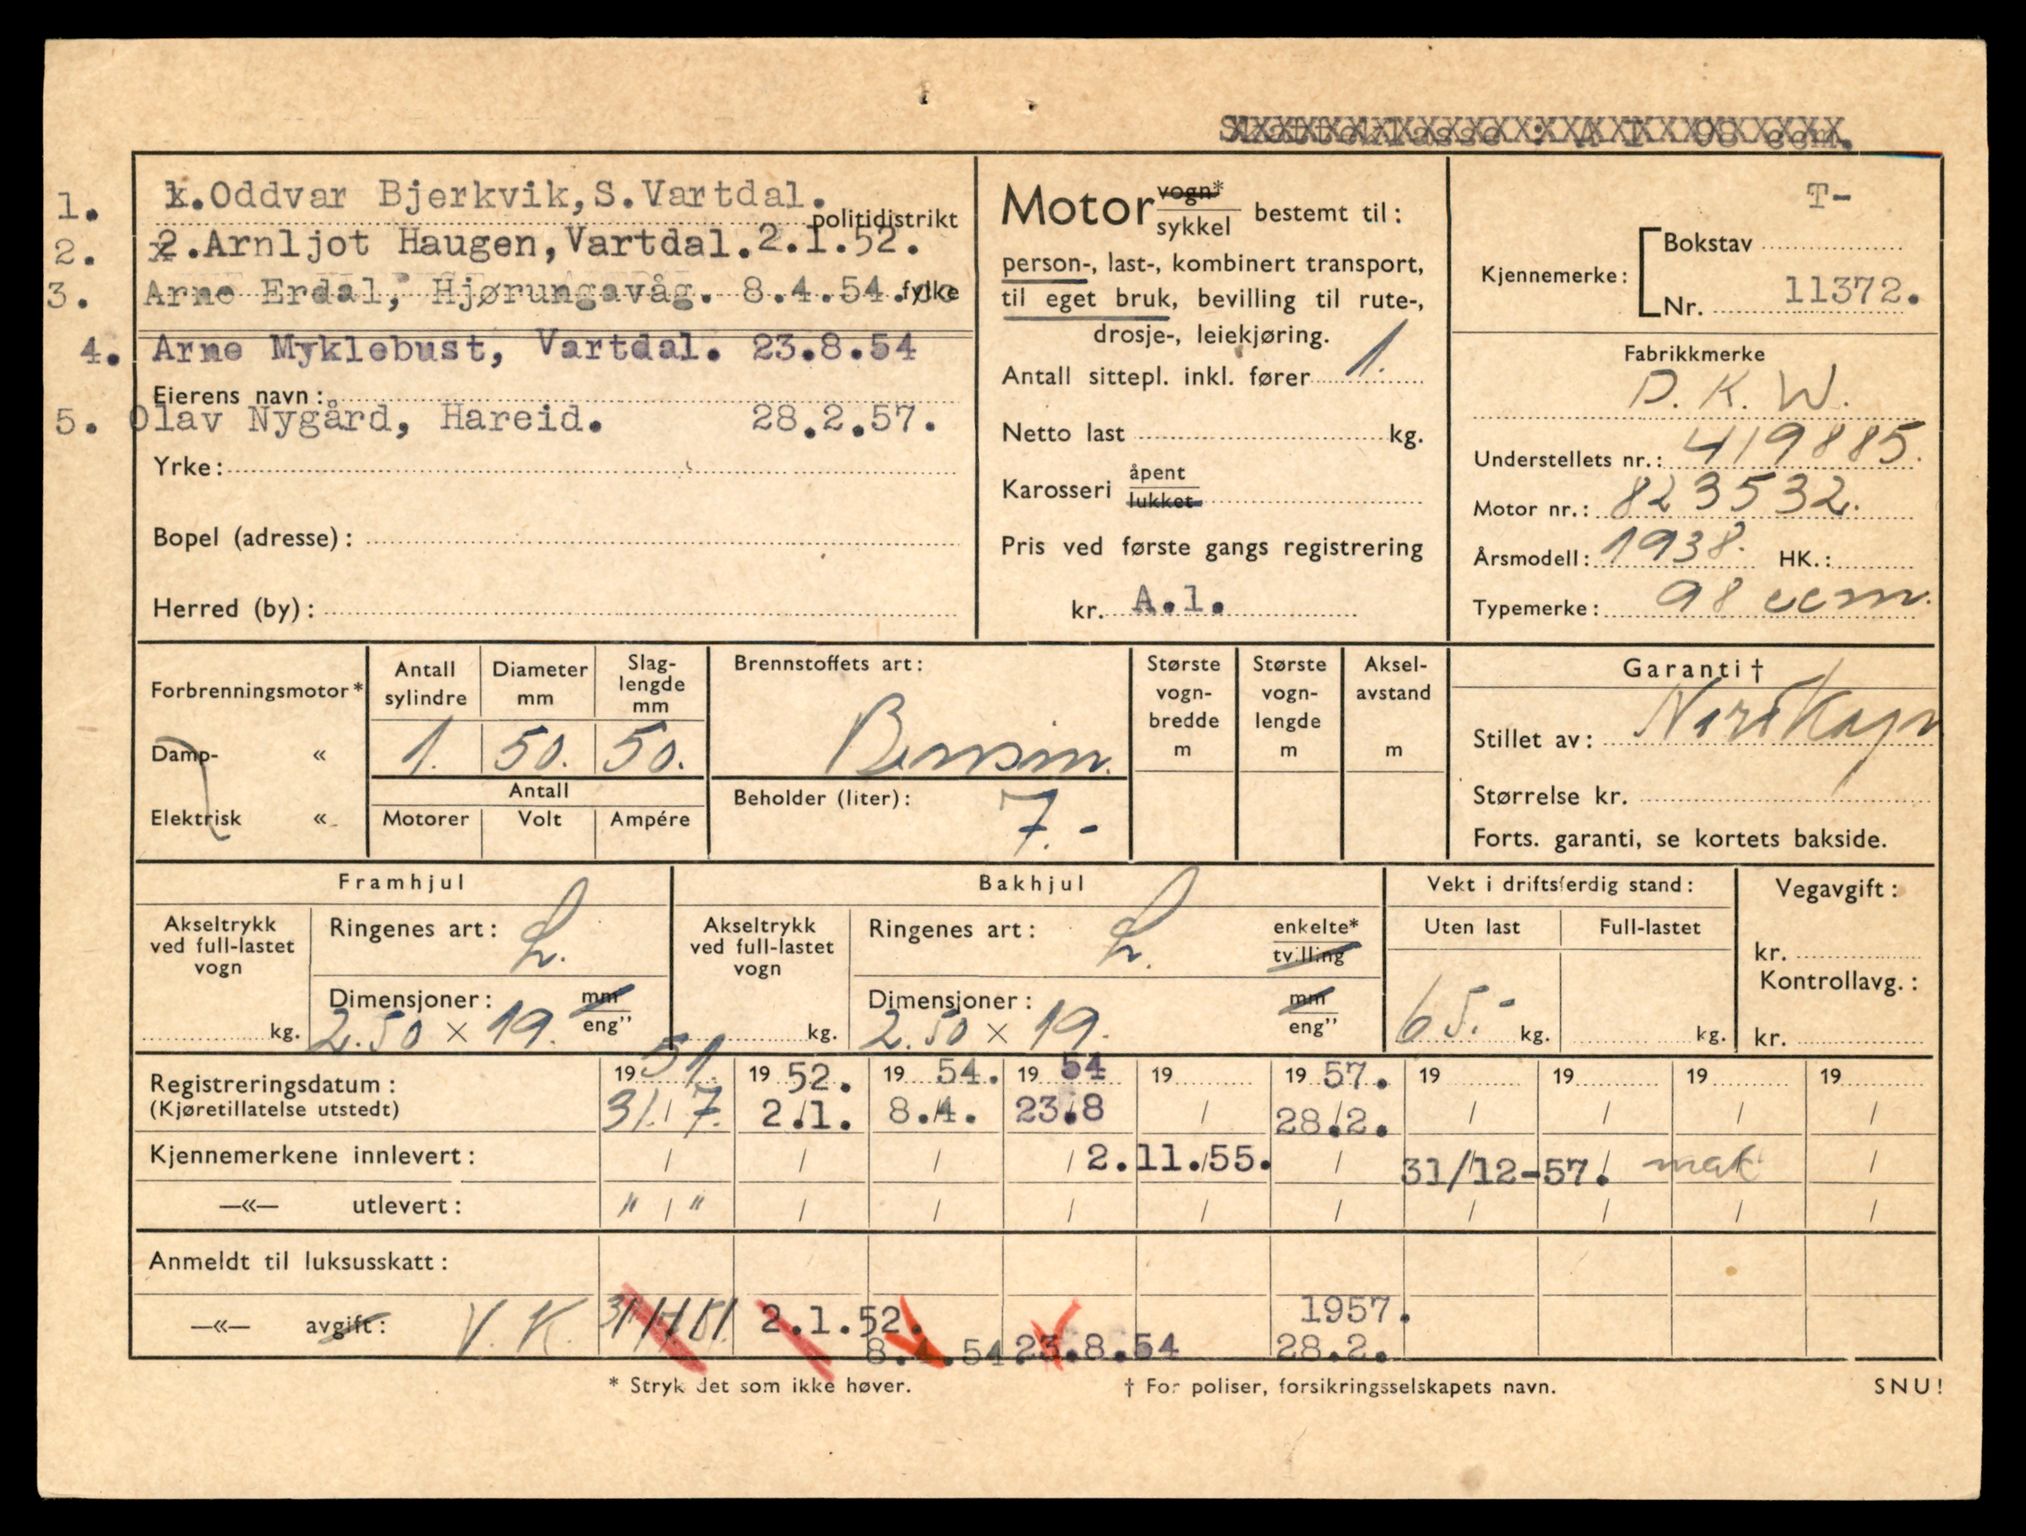 Skatteklasse : A I 98 ccm.
1. 1.Oddvar Bjerkvik,S.Vartdal.
politidistrikt
2. 2.Arnljot Haugen,Vartdal.2.1.52.
3. Arne Erdal, Hjørungavåg. 8.4.54.
fylke
4. Arne Myklebust, Vartdal. 23.8.54
Eierens navn:
5. Olav Nygård, Hareid. 28.2.57.
Yrke:
Bopel (adresse):
Herred (by):
Motor vogn* / sykkel bestemt til:
person-, last-, kombinert transport,
til eget bruk, bevilling til rute-,
drosje-, leiekjøring.
Antall sittepl. inkl. fører 1.
Netto last kg.
Karosseri åpent / lukket
Pris ved første gangs registrering
kr. A.1.
T-
Kjennemerke: Bokstav
Nr. 11372.
Fabrikkmerke
D. K. W.
Understellets nr.: 419885.
Motor nr.: 823532.
Årsmodell: 1938. HK.:
Typemerke: 98 ccm.
Forbrenningsmotor*
Damp- «
Elektrisk «
Antall sylindre
Diameter mm
Slag-lengde mm
1. 50. 50.
Antall
Motorer Volt Ampére
Brennstoffets art:
Bensin.
Beholder (liter):
7.-
Største vogn-bredde m
Største vogn-lengde m
Aksel-avstand m
Garanti †
Stillet av:
Størrelse kr.
Forts. garanti, se kortets bakside.
Framhjul
Akseltrykk ved full-lastet vogn
kg.
Ringenes art: L.
Dimensjoner: mm / eng”
2.50 × 19.
Bakhjul
Akseltrykk ved full-lastet vogn
kg.
Ringenes art: L. enkelte* / tvilling
Dimensjoner: mm / eng”
2.50 × 19.
Vekt i driftsferdig stand:
Uten last Full-lastet
65.- kg. kg.
Vegavgift:
kr.
Kontrollavg.:
kr.
Registreringsdatum: 19 51. 19 52. 19 54. 19 54 19 19 57. 19 19 19 19
(Kjøretillatelse utstedt) 31./7. 2./1. 8./4. 23./8 / 28./2. / / / /
Kjennemerkene innlevert: / / / / 2.11./55. / 31/12-57. mak /
—«— utlevert: " / " / / / / / / / / /
Anmeldt til luksusskatt:
1957.
—«— avgift: V. K. 31/7/51. 2.1.52. 8.4.54. 23.8.54 28.2.
* Stryk det som ikke høver.
† For poliser, forsikringsselskapets navn.
SNU!